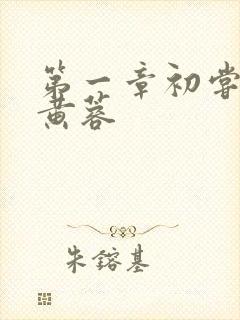 第一章初尝
黄蓉
朱镕基